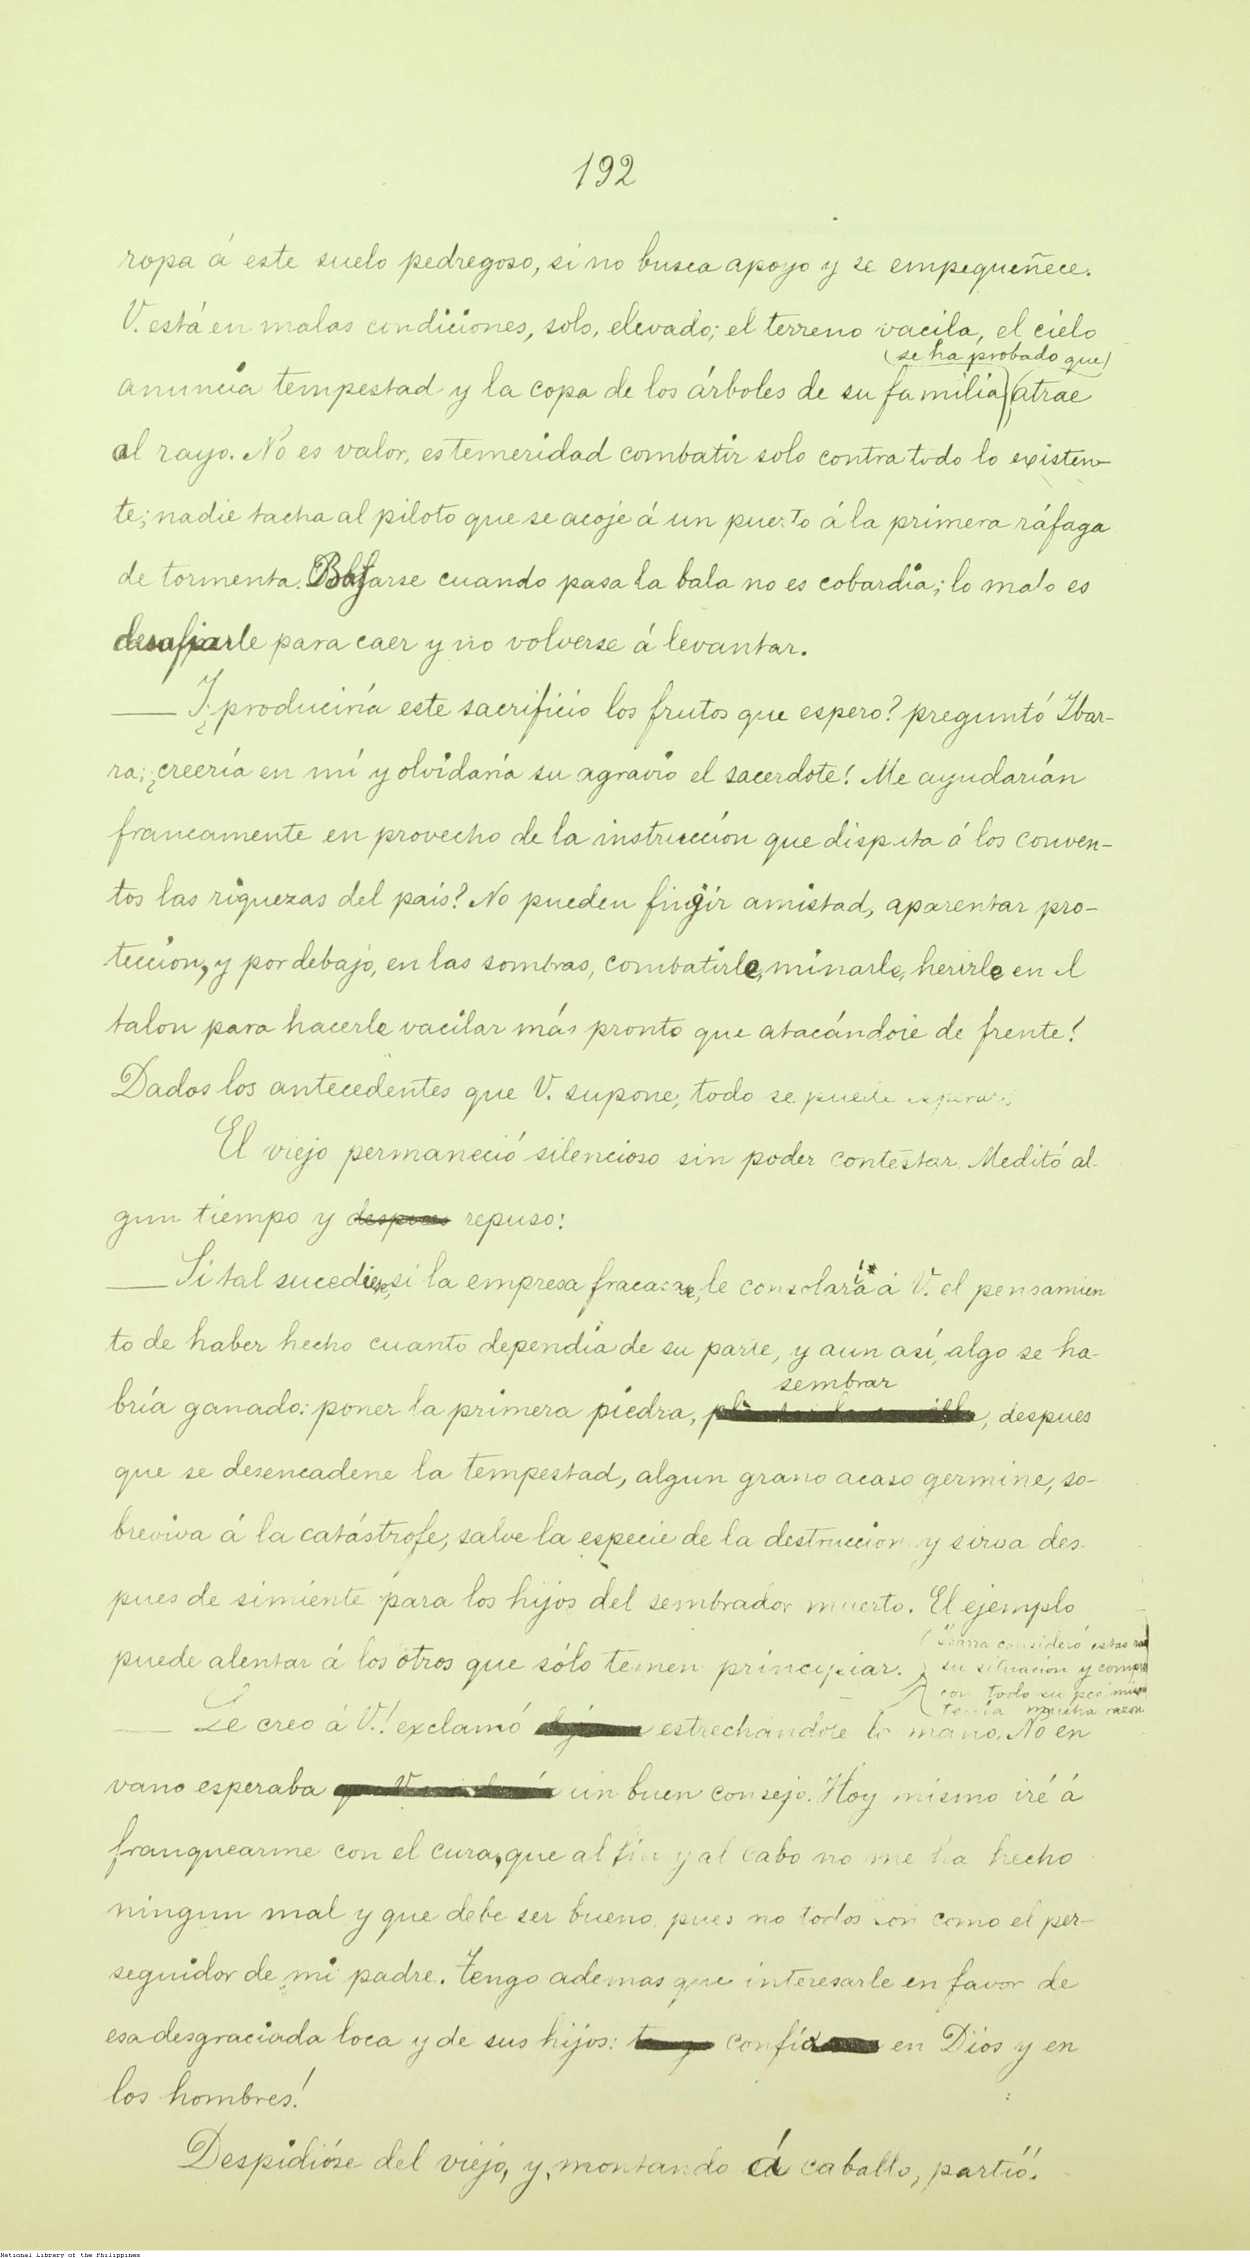 192
ropa á este suelo pedregoso, si no busca apoyo y se empequeñece.
V. está en malas condiciones, solo, elevado; el terreno vacila, el cielo
(se ha probado que)
anuncia tempestad y la copa de los árboles de su familia atrae
al rayo. No es valor, es temeridad combatir solo contra todo lo existen-
te; nadie tacha al piloto que se acoje á un puerto á la primera ráfaga
de tormenta. Bajarse cuando pasa la bala no es cobardía; lo malo es
desafiarle para caer y no volverse á levantar.
— Y ¿produciría este sacrificio los frutos que espero? preguntó Ibar-
ra; ¿creería en mí y olvidaría su agravio el sacerdote! Me ayudarían
francamente en provecho de la instrucción que disputa á los conven-
tos las riquezas del país? No pueden fingir amistad, aparentar pro-
teccion, y por debajo, en las sombras, combatirle, minarle, herirle en el
talon para hacerle vacilar más pronto que atacándole de frente!
Dados los antecedentes que V. supone, todo se puede esperar
El viejo permaneció silencioso sin poder contestar. Meditó al-
gun tiempo y despues repuso:
— Si tal sucediese, si la empresa fracasase, le consolará á V. el pensamien
to de haber hecho cuanto dependía de su parte, y aun así, algo se ha-
bría ganado: poner la primera piedra, sembrar, despues
que se desencadene la tempestad, algun grano acaso germine, so-
breviva á la catástrofe, salve la especie de la destruccion y sirva des-
pues de simiente para los hijos del sembrador muerto. El ejemplo
puede alentar á los otros que sólo temen principiar.
Ibarra consideró estas
su situación y
con todo su
tenía mucha razon
— Le creo á V.! exclamó estrechándole la mano. No en
vano esperaba un buen consejo. Hoy mismo iré á
franquearme con el cura, que al fin y al cabo no me ha hecho
ningun mal y que debe ser bueno, pues no todos son como el per-
seguidor de mi padre. Tengo ademas que interesarle en favor de
esa desgraciada loca y de sus hijos: confío en Dios y en
los hombres!
Despidióse del viejo, y, montando á caballo, partió.
National Library of the Philippines